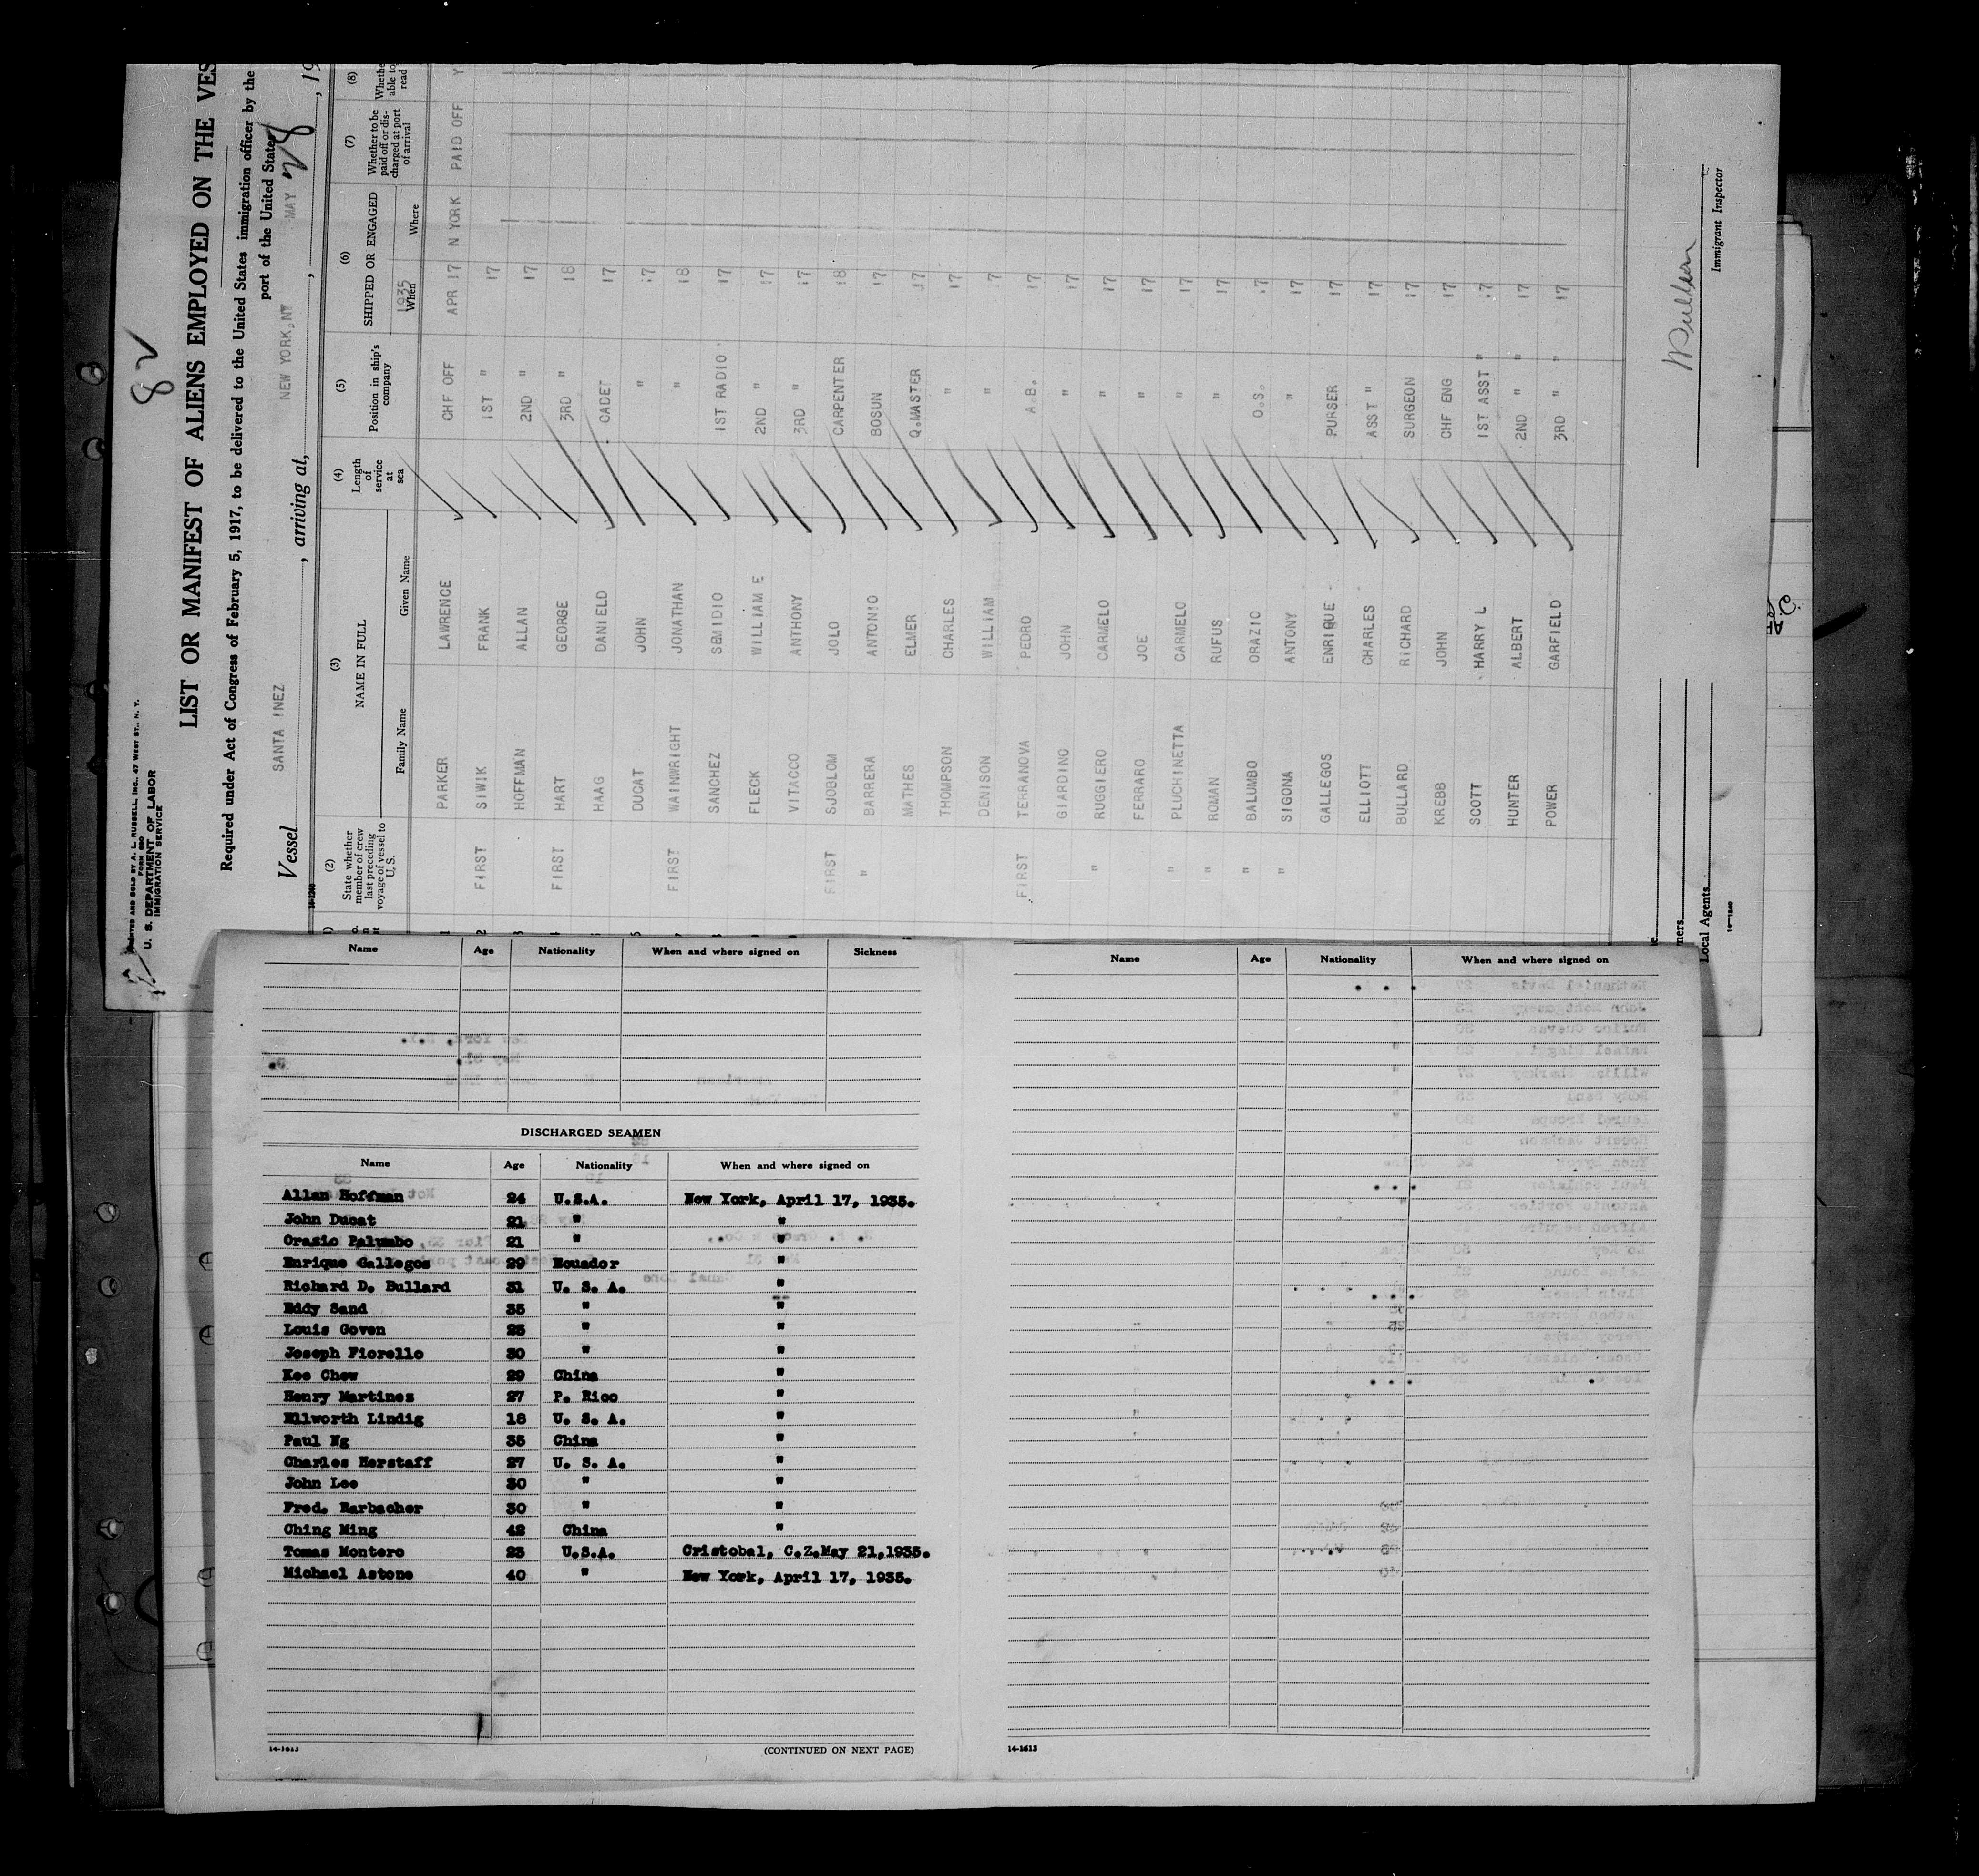 8 2
PRINTED AND SOLD BY A. L. RUSSELL, INC., 47 WEST ST., N. Y.
FORM 680
U. S. DEPARTMENT OF LABOR
IMMIGRATION SERVICE
LIST OR MANIFEST OF ALIENS EMPLOYED ON THE VES
Required under Act of Congress of February 5, 1917, to be delivered to the United States immigration officer by the
port of the United States
Vessel SANTA INEZ, arriving at, NEW YORK.NY, MAY, 19
(2) State whether member of crew last preceding voyage of vessel to U. S.
(3) NAME IN FULL
Family Name Given Name
(4) Length of service at sea
(5) Position in ship's company
(6) SHIPPED OR ENGAGED
1935 When Where
(7) Whether to be paid off or discharged at port of arrival
(8) Whethe able to read
1 PARKER LAWRENCE CHF OFF APR 17 N YORK PAID OFF Y
2 FIRST SIWIK FRANK 1ST " 17
3 HOFFMAN ALLAN 2ND " 17
4 FIRST HART GEORGE 3RD " 18
HAAG DANIELD CADET 17
DUCAT JOHN " 17
7 FIRST WAINWRIGHT JONATHAN " 18
SANCHEZ SEMIDIO 1ST RADIO 17
FLECK WILLIAM E 2ND " 17
VITACCO ANTHONY 3RD " 17
FIRST SJOBLOM JOLO CARPENTER 18
" BARRERA ANTONIO BOSUN 17
MATHES ELMER Q.MASTER 17
THOMPSON CHARLES " 17
DENISON WILLIAM " 7
FIRST TERRANOVA PEDRO A.B. 17
GIARDINO JOHN " 17
" RUGGIERO CARMELO " 17
FERRARO JOE " 17
" PLUCHINETTA CARMELO " 17
" ROMAN RUFUS " 17
" BALUMBO ORAZIO O.S. 17
" SIGONA ANTONY " 17
GALLEGOS ENRIQUE PURSER 17
ELLIOTT CHARLES ASST " 17
BULLARD RICHARD SURGEON 17
KREBB JOHN CHF ENG 17
SCOTT HARRY L 1ST ASST " 17
HUNTER ALBERT 2ND " " 17
POWER GARFIELD 3RD " " 17
Immigrant Inspector
Local Agents
14-1240
Name Age Nationality When and where signed on Sickness
DISCHARGED SEAMEN
Name Age Nationality When and where signed on
Allan Hoffman 24 U.S.A. New York, April 17, 1935.
John Ducat 21 " "
Orazio Palumbo 21 " "
Enrique Gallegos 29 Ecuador "
Richard D. Bullard 31 U. S. A. "
Eddy Sand 35 " "
Louis Goven 25 " "
Joseph Fiorello 30 " "
Kee Chew 29 China "
Henry Martinez 27 P. Rico "
Ellworth Lindig 18 U. S. A. "
Paul Ng 35 China "
Charles Herstaff 27 U. S. A. "
John Lee 30 " "
Fred. Rarbacher 30 " "
Ching Ming 42 China "
Tomas Montero 23 U.S.A. Cristobal, C.Z.May 21,1935.
Michael Astone 40 " New York, April 17, 1935.
14-1613
(CONTINUED ON NEXT PAGE)
Name Age Nationality When and where signed on
14-1613